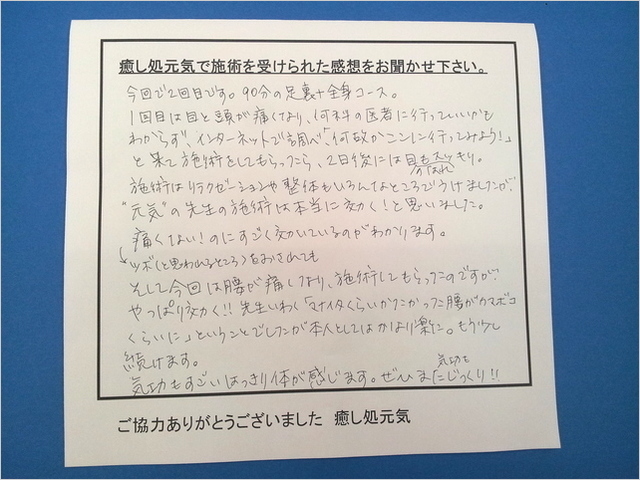 癒し処元気で施術を受けられた感想をお聞かせ下さい。
今回で2回目です。90分の足裏+全身コース。
1回目は目と頭が痛くなり、何科の医者に行っていいかも
わからず、インターネットで調べ、「何故かココに行ってみよう!」
と来て施術をしてもらったら、2日後には目もスッキリ。
施術はリラクゼーションや整体もいろんなところでうけましたが、
"元気"の先生の施術は本当に効く!と思いました。
痛くない!のにすごく効いているのがわかります。
ツボ(と思われるところ)をおされても
そして今回は腰が痛くなり、施術してもらったのですが、
やっぱり効く!!先生いわく「マナイタくらいかたかった腰がカマボコ
くらいに」ということでしたが本人としてはかなり楽に。もう少し
続けます。
気功もすごいはっきり体が感じます。ぜひまた気功もじっくり!!
ご協力ありがとうございました 癒し処元気